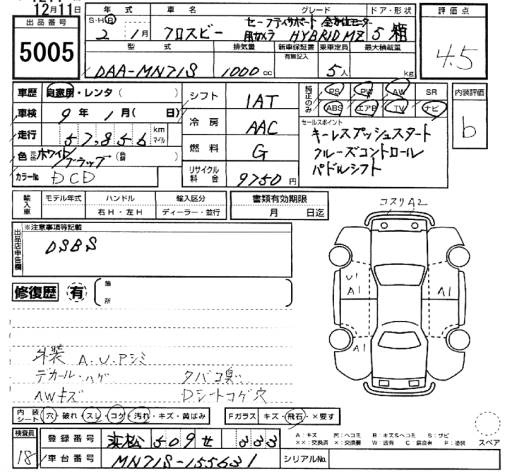 12月11日
出品番号
5005
年式 車名 グレード ドア・形状
S・H・R 2年 1月 クロスビー セーフティサポート 全方位モニター用カメラ HYBRID MZ 5 箱
型式 排気量 新車保証書 有無記入 乗車定員 最大積載量
DAA-MN71S 1000cc 5人 kg
評価点
4.5
車歴 自家用・レンタ
車検 9年 1月 ( 日)
走行 57,856 km マイル
色 ホワイト/ブラック
カラーNo DCD
シフト 1AT
冷房 AAC
燃料 G
リサイクル料金 9750円
純正のみ PS PW AW SR
ABS エアB TV ナビ
セールスポイント
キーレスプッシュスタート
クルーズコントロール
パドルシフト
内装評価
b
輸入車 モデル年式 ハンドル 輸入区分 書類有効期限
年 右H・左H ディーラー・並行 月 日迄
出品店申告欄
※注意事項等記載
DSBS
修復歴 有 箇所
コスリA2
U1
A1 A1
A1
外装 A.U.Pシミ
デカール・ハゲ タバコ臭
AWキズ Dシートコゲ穴
内装シート 穴・破れ・スレ・コゲ・汚れ・キズ・黄ばみ Fガラス キズ・飛石・×要す
検査員
18
登録番号 浜松 509 せ 333
車台番号 MN71S-155631 シリアルNo.
スペア